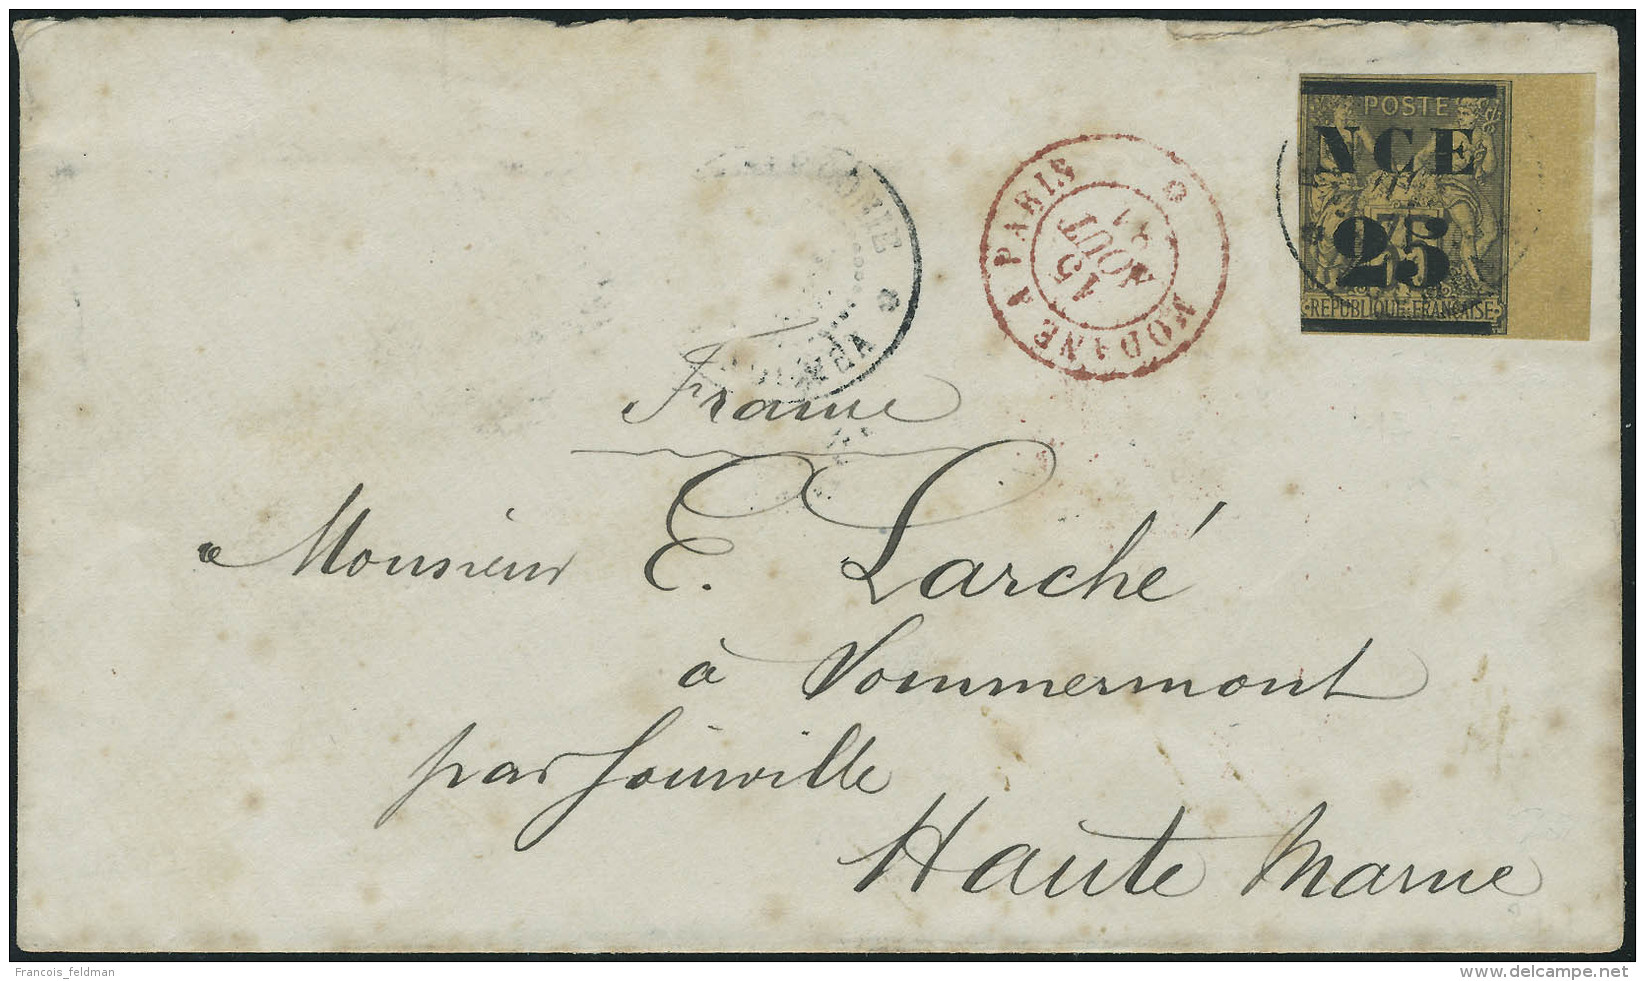 POSTE
NCE
25
RÉPUBLIQUE FRANÇAISE
MODANE A PARIS
15
AOUT
81
France
a Monsieur E. Larché
à Vommermont
par Joinville
Haute Marne
Francois_feldman
www.delcampe.net